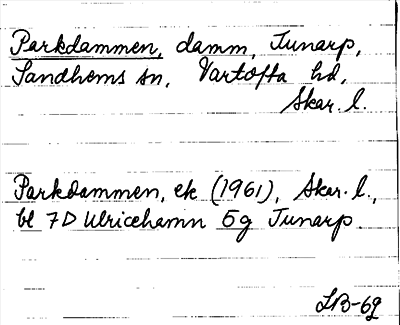 Parkdammen, damm, Tunarp,
Sandhems sn, Vartofta hd,
Skar. l.
Parkdammen, ek (1961), Skar. l.,
bl 7D Ulricehamn 5g Tunarp.
LB-69